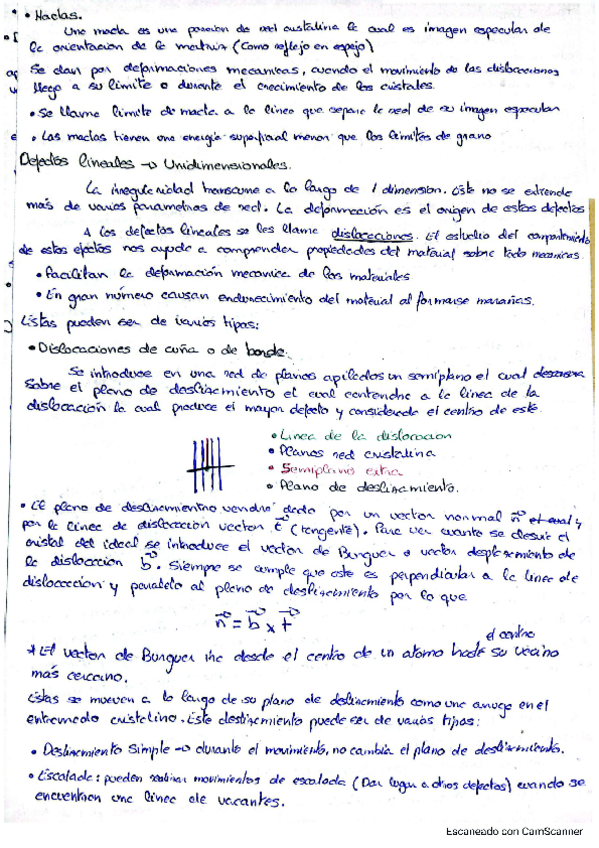 • Maclas.
Una macla es una porción de red cristalina la cual es imagen especular de
la orientación de la matriz (Como reflejo en espejo)
Se dan por deformaciones mecanicas, cuando el movimiento de las dislocaciones
llega a su límite o durante el crecimiento de los cristales.
• Se llama limite de macla a la linea que separa la red de su imagen especular
• Las maclas tienen una energía superficial menor que los límites de grano
Defectos lineales → Unidimensionales.
La irregularidad transcurre a lo largo de 1 dimension. Este no se extiende
más de varios parametros de red. La deformación es el origen de estos defectos
A los defectos lineales se les llama dislocaciones. El estudio del comportamiento
de estos efectos nos ayuda a comprender propiedades del material sobre todo mecanicas.
• Facilitan la deformación mecanica de los materiales
• En gran número causan endurecimiento del material al formarse marañas.
Estas pueden ser de varios tipos:
• Dislocaciones de cuña o de borde.
Se introduce en una red de planos apilados un semiplano el cual descansa
sobre el plano de deslizamiento el cual contendra a la linea de la
dislocación la cual produce el mayor defecto y considerada el centro de este.
• Linea de la dislocacion
• Planos red cristalina
• Semiplano extra
• Plano de deslizamiento.
• El plano de deslizamiento vendra dado por un vector normal n⃗ el cual y
por la linea de dislocación vector t⃗ (tangente). Para ver cuanto se desvia el
cristal del ideal se introduce el vector de Burguer o vector desplazamiento de
la dislocacion b⃗. Siempre se cumple que este es perpendicular a la linea de
dislocacción y paralelo al plano de deslizamiento por lo que
n⃗ = b⃗ x t⃗
el centro
* El vector de Burguer ira desde el centro de un atomo hasta su vecino
más cercano.
Estas se mueven a lo largo de su plano de deslizamiento como una arruga en el
entramado cristalino. Este deslizamiento puede ser de varios tipos:
• Deslizamiento Simple → durante el movimiento, no cambia el plano de deslizamiento.
• Escalada: pueden realizar movimientos de escalada (Dar lugar a otros defectos) cuando se
encuentran una linea de vacantes.
Escaneado con CamScanner